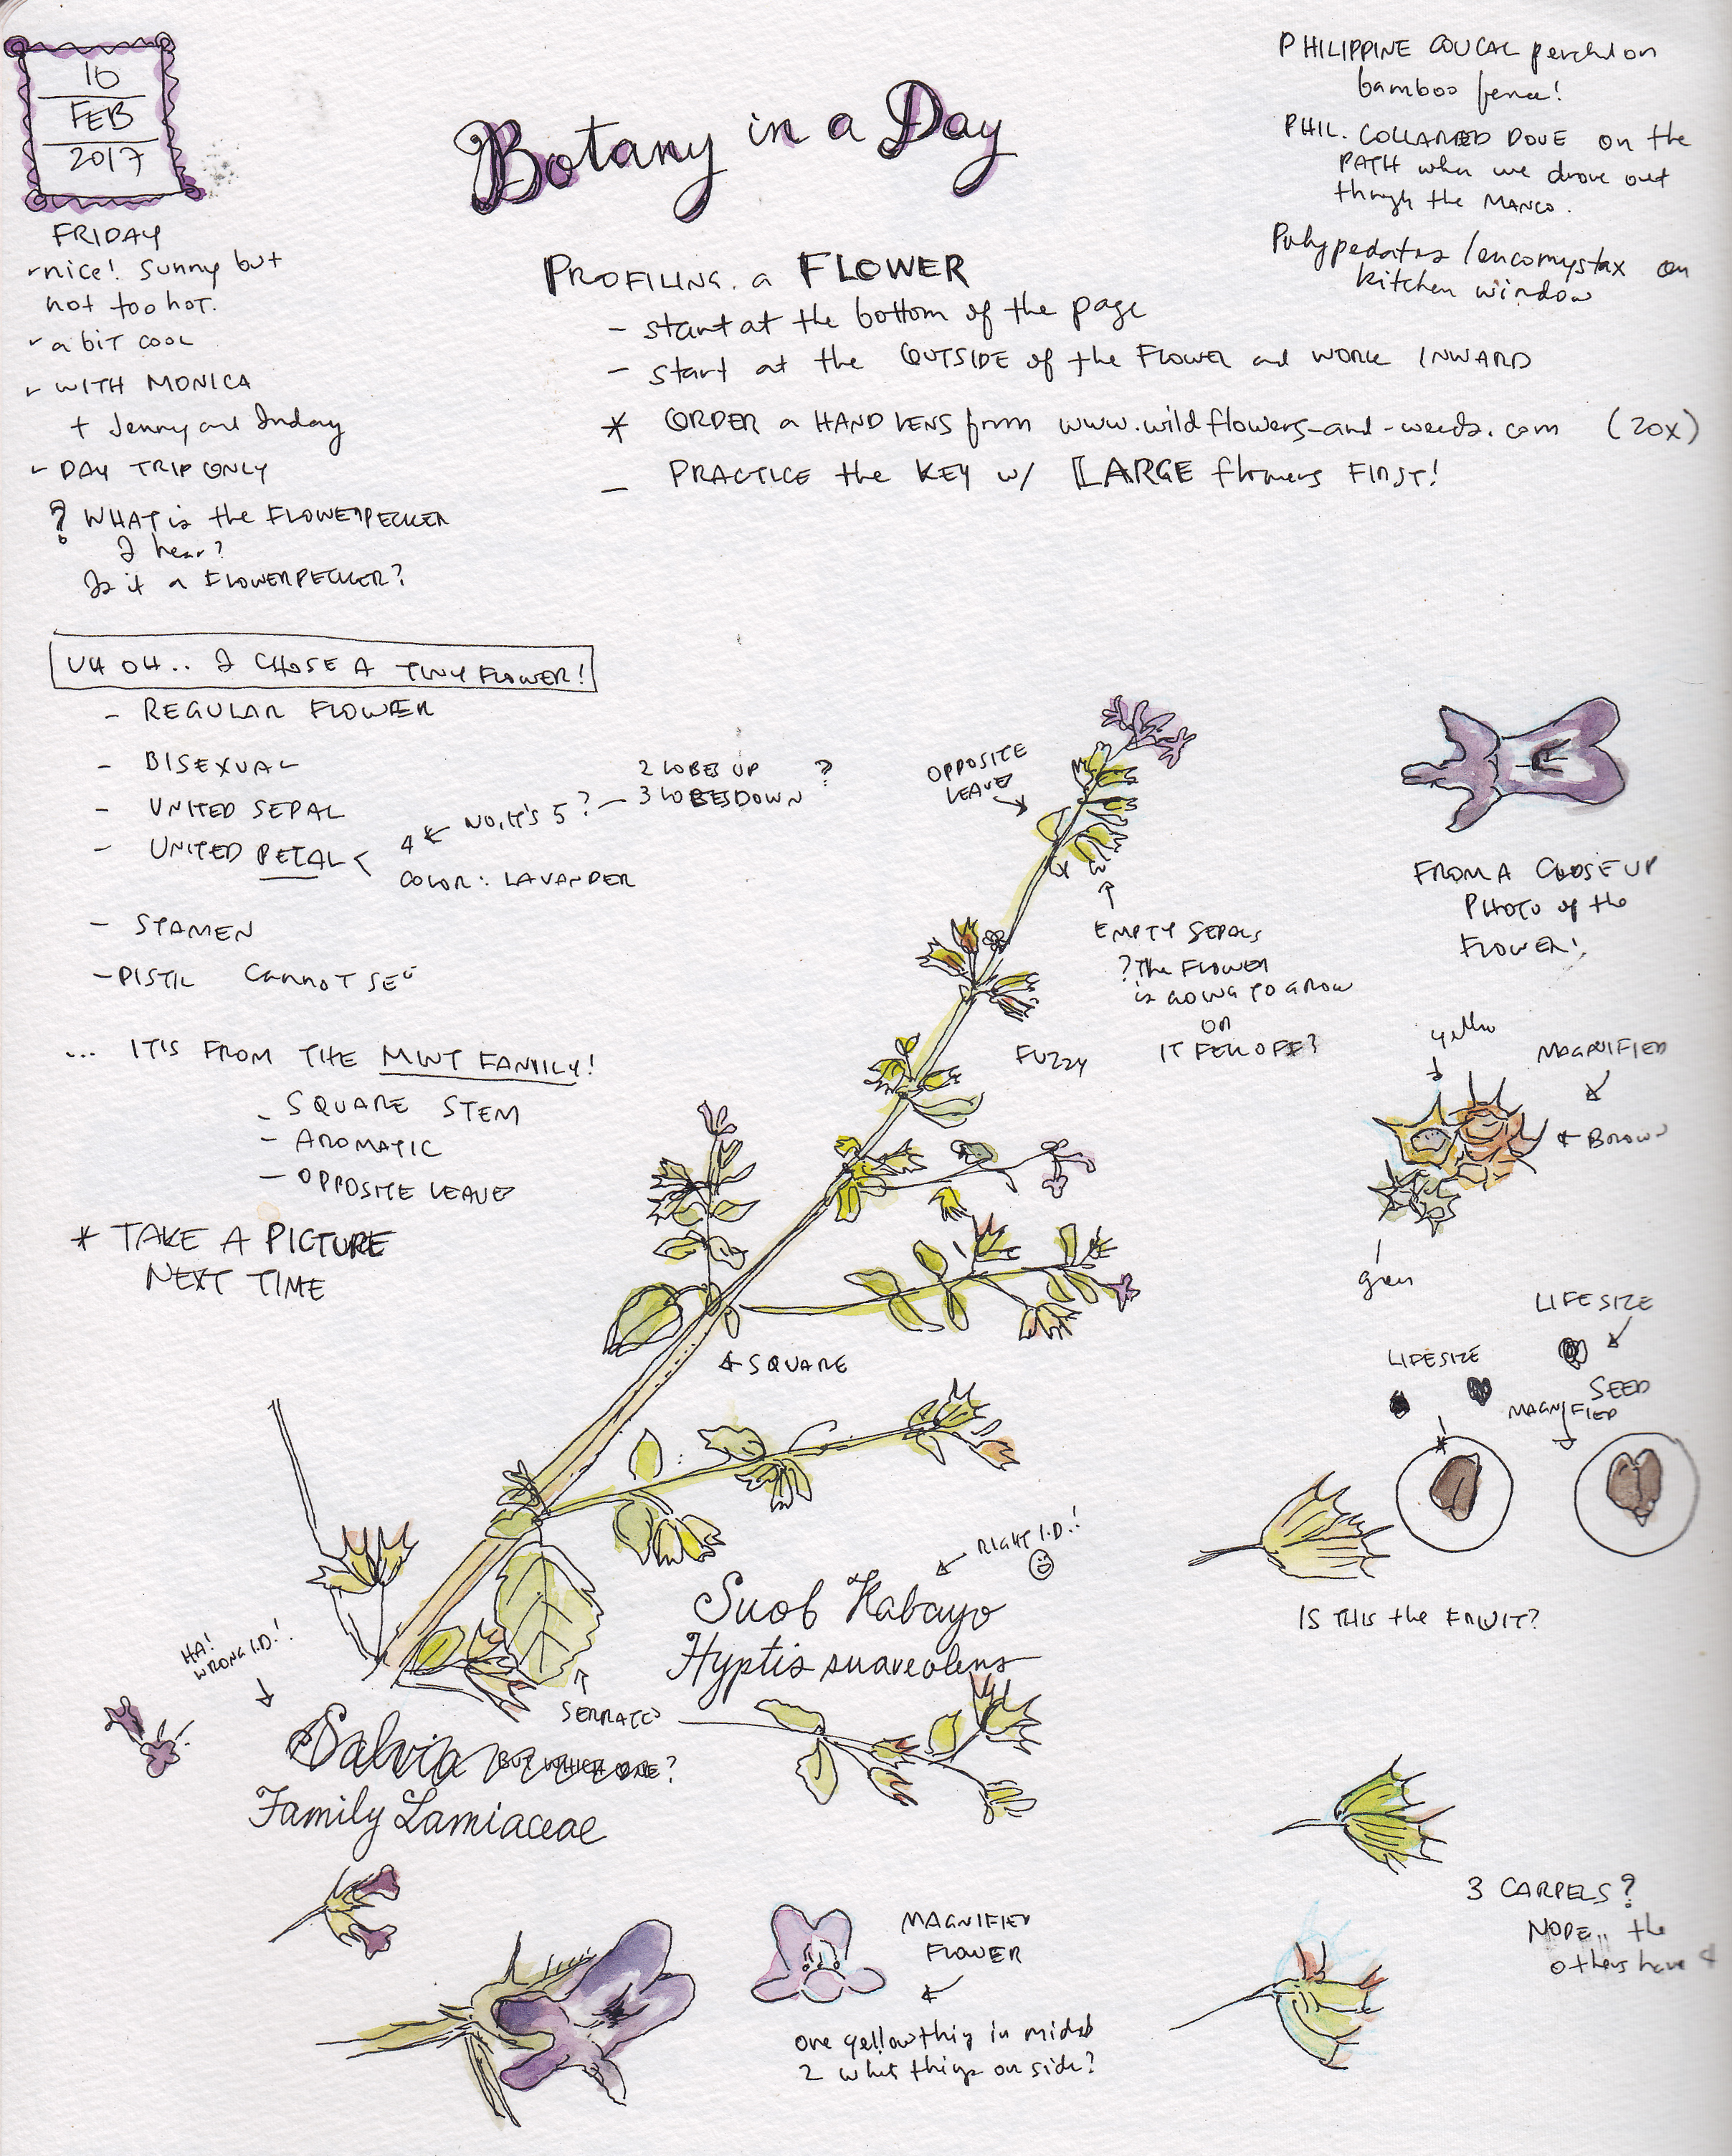 10
FEB
2017
FRIDAY
- nice! Sunny but
not too hot.
- a bit cool
- WITH MONICA
+ Jenny and Inday
- DAY TRIP ONLY
? WHAT is the FLOWERPECKER
I hear?
Is it a FLOWERPECKER?
Botany in a Day
PROFILING a FLOWER
- start at the bottom of the page
- start at the OUTSIDE of the FLOWER and WORK INWARD
* ORDER a HAND LENS from www.wildflowers-and-weeds.com (20x)
- PRACTICE the KEY w/ LARGE flowers FIRST!
PHILIPPINE COUCAL perched on
bamboo fence!
PHIL. COLLARED DOVE on the
PATH when we drove out
through the MANGO.
Polypedates leucomystax on
kitchen window
UH OH.. I CHOSE A TINY FLOWER!
- REGULAR FLOWER
- BISEXUAL
- UNITED SEPAL
- UNITED PETAL <
4 ← NO, IT'S 5? - 2 LOBES UP ?
3 LOBES DOWN
COLOR: LAVANDER
- STAMEN
- PISTIL CANNOT SEE
... IT IS FROM THE MINT FAMILY!
- SQUARE STEM
- AROMATIC
- OPPOSITE LEAVE
* TAKE A PICTURE
NEXT TIME
OPPOSITE
LEAVE
EMPTY SEPALS
? The FLOWER
is GOING TO GROW
OR
IT FELL OFF?
FUZZY
← SQUARE
FROM A CLOSE UP
PHOTO of the
FLOWER!
yellow
MAGNIFIED
← BROWN
green
LIFESIZE
LIFESIZE
SEED
MAGNIFIED
IS THIS the FRUIT?
RIGHT I.D.!
Suob Kabayo
Hyptis suaveolens
SERRATED
HA!
WRONG I.D.!
Salvia BUT WHICH ONE?
Family Lamiaceae
MAGNIFIED
FLOWER
one yellow thing in middle
2 white things on side?
3 CARPELS?
NOPE.. the
others have 4